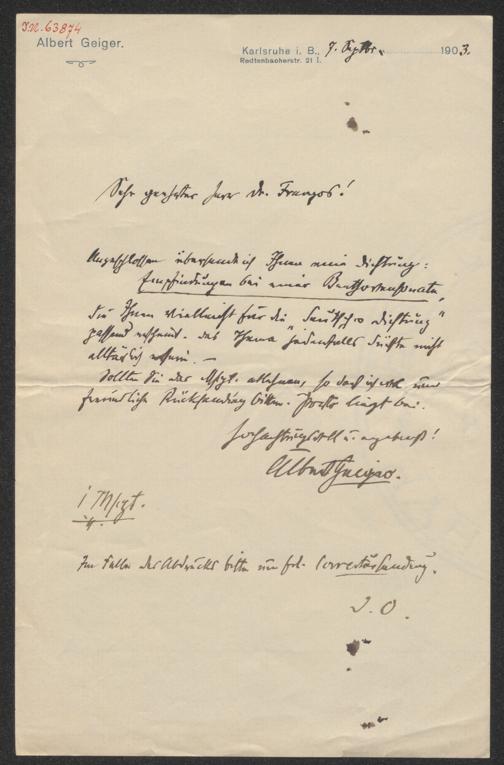 I.N. 63874
Albert Geiger.
Karlsruhe i. B., 7. Septbr. 1903.
Redtenbacherstr. 21 I.
Sehr geehrter Herr Dr. Franzos!
Angeschlossen übersende ich Ihnen eine Dichtung:
Empfindungen bei einer Beethovensonate,
die Ihnen vielleicht für die "Deutsche Dichtung"
passend erscheint. Das Thema jedenfalls dürfte nicht
alltäglich sein. —
Sollten Sie das Mscpt. ablehnen, so darf ich wohl um
freundliche Rücksendung bitten. Porto liegt bei.
Hochachtungsvoll u. ergebenst!
Albert Geiger.
1 Mscpt.
Im Falle des Abdrucks bitte um frdl. Correctursendung.
D. O.